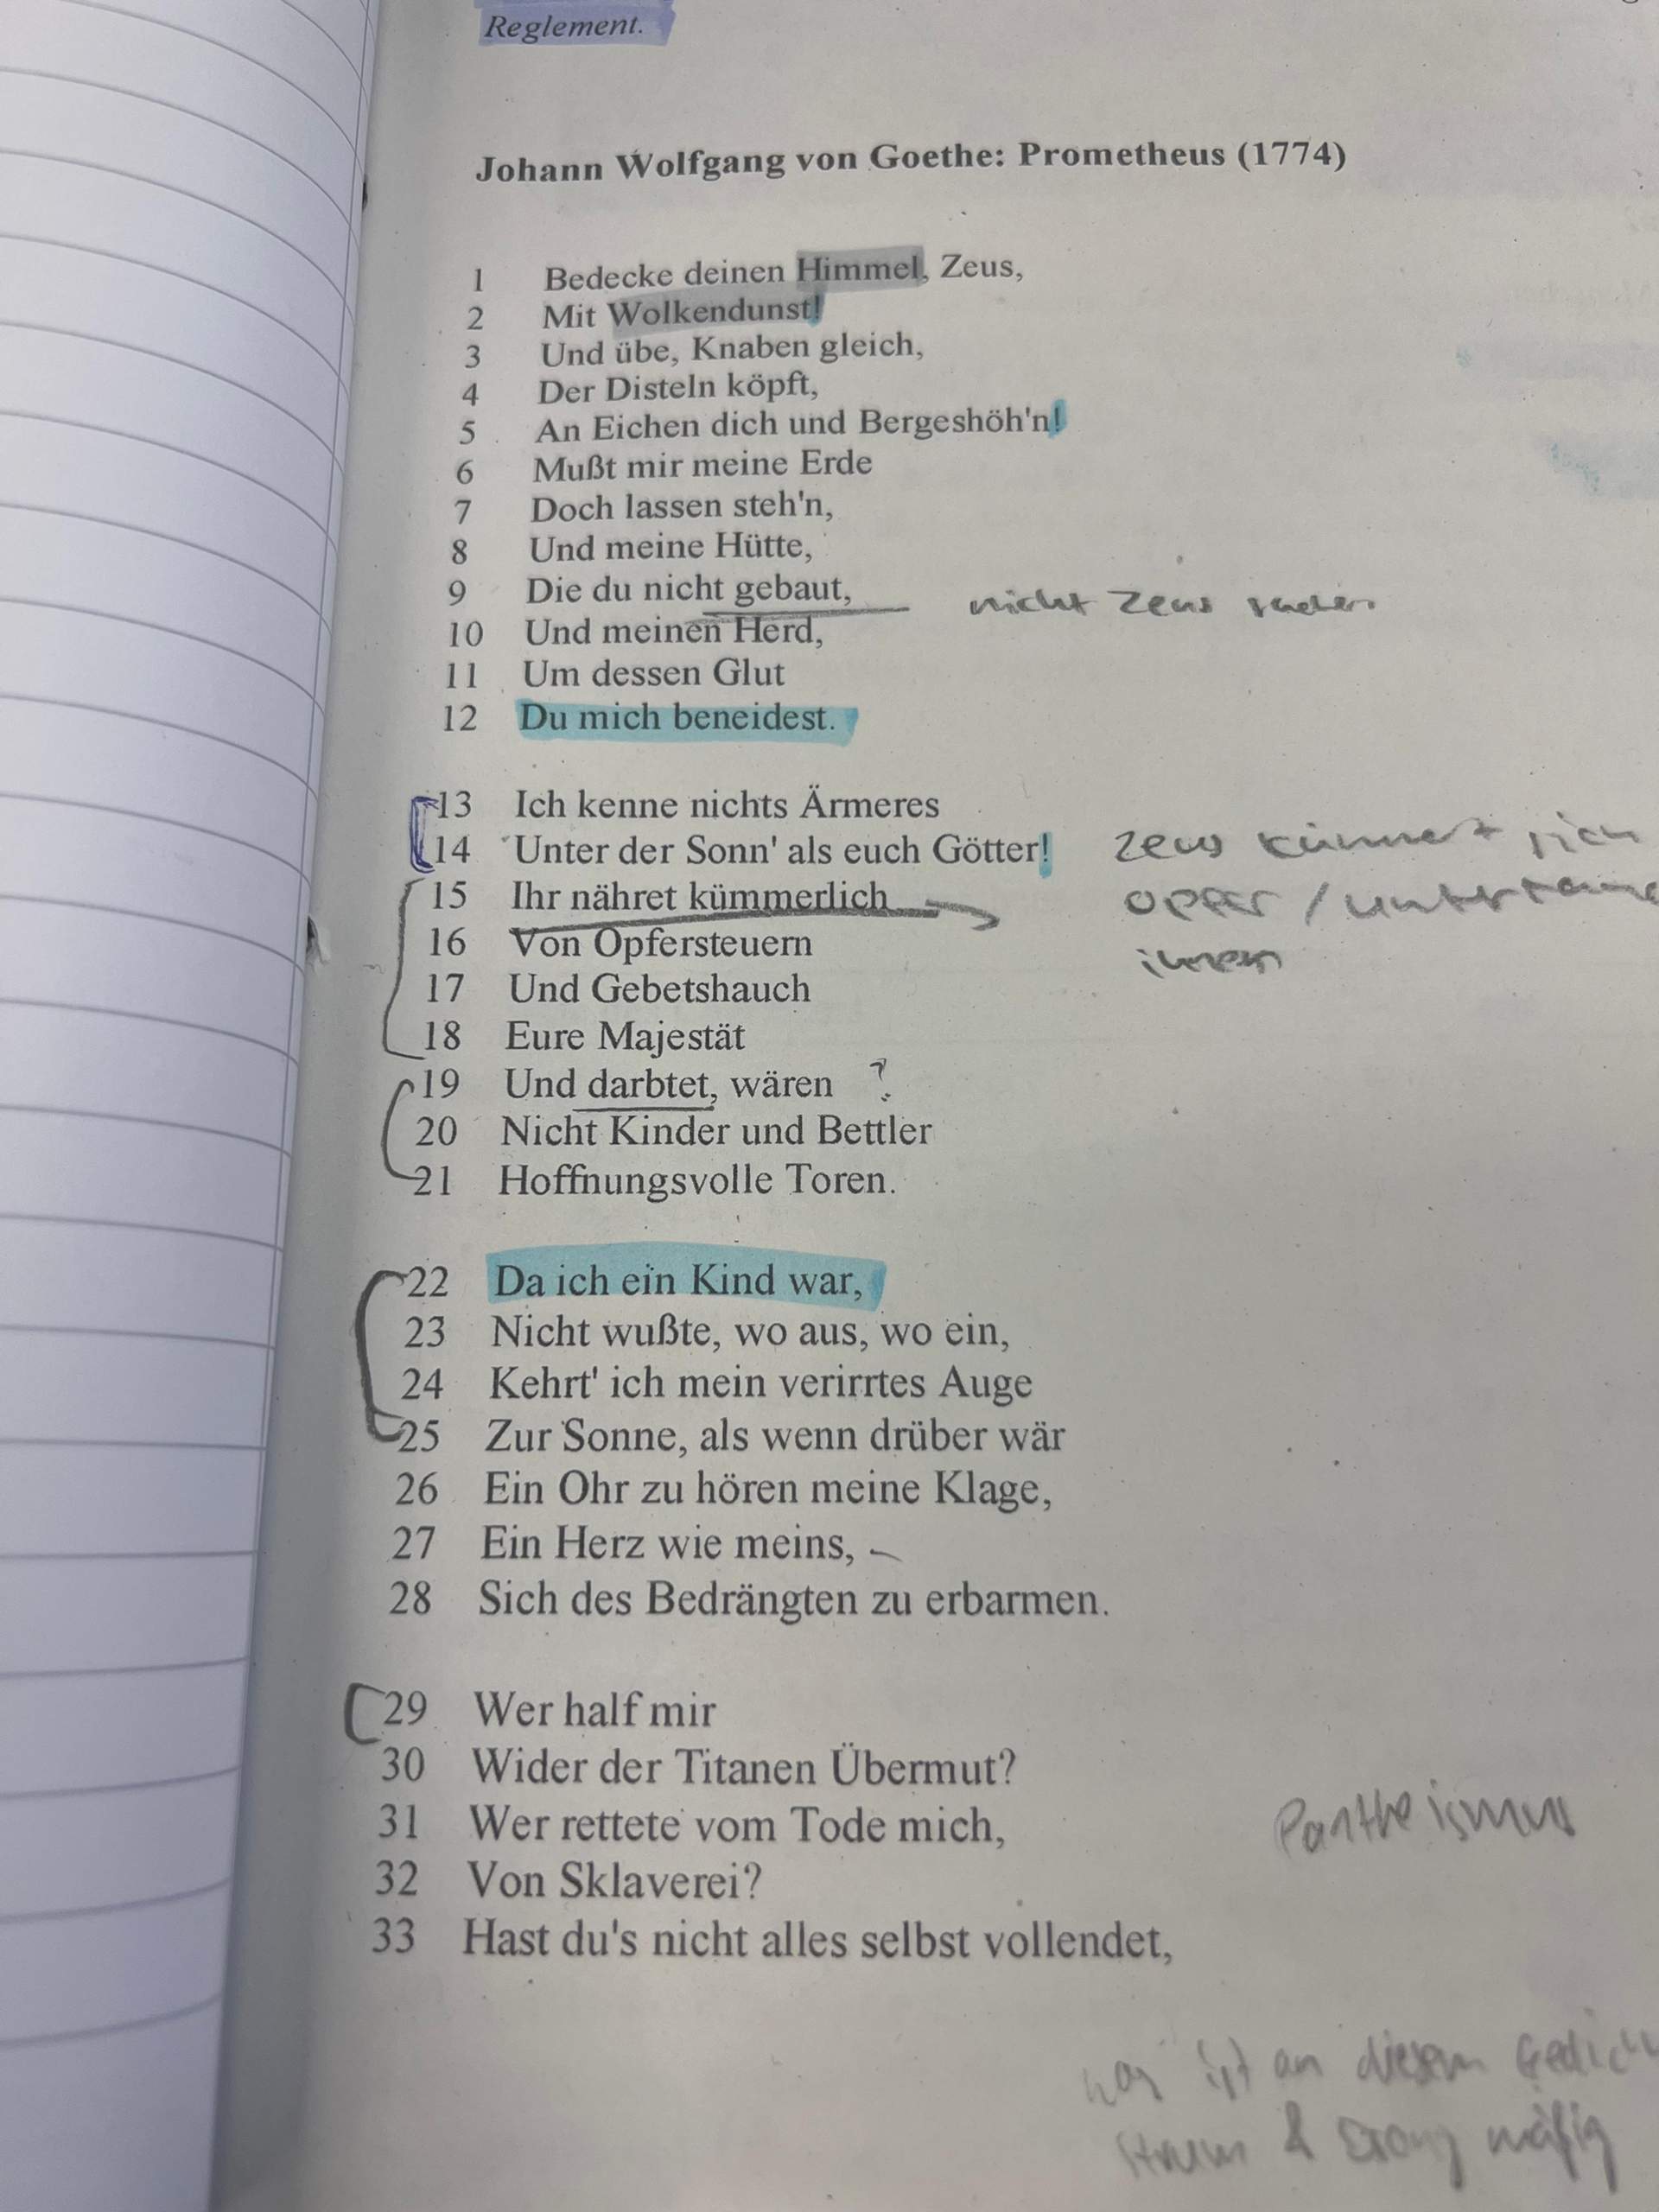 Reglement.
Johann Wolfgang von Goethe: Prometheus (1774)
1 Bedecke deinen Himmel, Zeus,
2 Mit Wolkendunst!
3 Und übe, Knaben gleich,
4 Der Disteln köpft,
5 An Eichen dich und Bergeshöh'n!
6 Mußt mir meine Erde
7 Doch lassen steh'n,
8 Und meine Hütte,
9 Die du nicht gebaut, nicht Zeus
10 Und meinen Herd,
11 Um dessen Glut
12 Du mich beneidest.
13 Ich kenne nichts Ärmeres
14 Unter der Sonn' als euch Götter! Zeus kümmert sich
15 Ihr nähret kümmerlich Opfer /
16 Von Opfersteuern
17 Und Gebetshauch
18 Eure Majestät
19 Und darbtet, wären ?
20 Nicht Kinder und Bettler
21 Hoffnungsvolle Toren.
22 Da ich ein Kind war,
23 Nicht wußte, wo aus, wo ein,
24 Kehrt' ich mein verirrtes Auge
25 Zur Sonne, als wenn drüber wär
26 Ein Ohr zu hören meine Klage,
27 Ein Herz wie meins,
28 Sich des Bedrängten zu erbarmen.
29 Wer half mir
30 Wider der Titanen Übermut?
31 Wer rettete vom Tode mich, Pantheismus
32 Von Sklaverei?
33 Hast du's nicht alles selbst vollendet,
was ist an diesem Gedich
Sturm & Drang mäßig